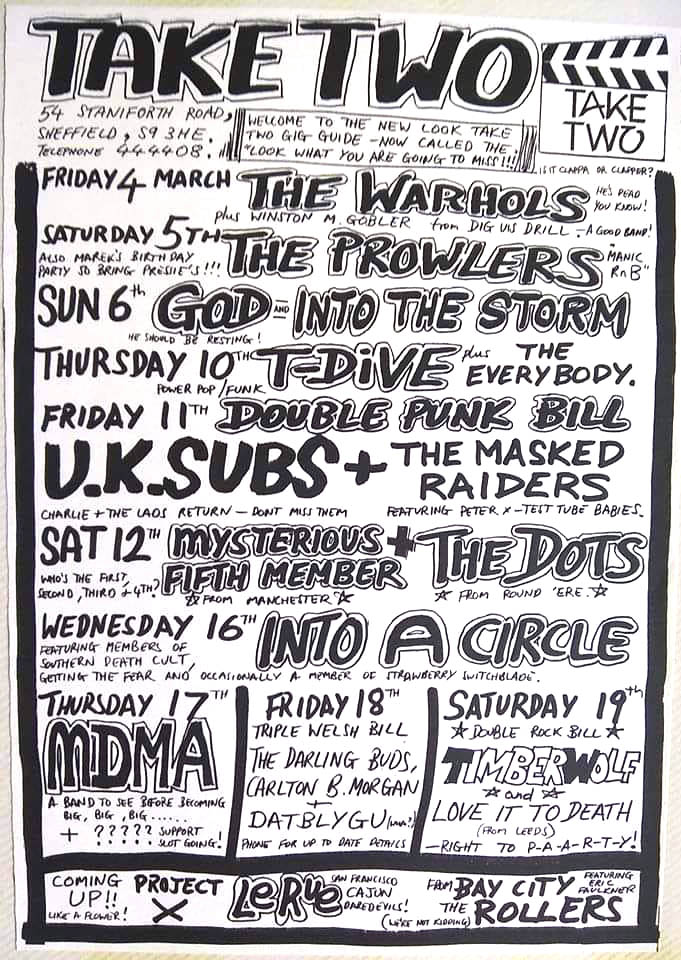 TAKE TWO
54 STANIFORTH ROAD,
SHEFFIELD, S9 3HE.
TELEPHONE 444408.
WELCOME TO THE NEW LOOK TAKE
TWO GIG GUIDE - NOW CALLED THE.
"LOOK WHAT YOU ARE GOING TO MISS!!!
TAKE
TWO
IS IT CLAPPA OR CLAPPER?
FRIDAY 4 MARCH THE WARHOLS
HE'S DEAD
YOU KNOW!
plus WINSTON M. GOBLER from DIG VIS DRILL - A GOOD BAND!
SATURDAY 5TH THE PROWLERS
"MANIC
RnB"
ALSO MAREK'S BIRTHDAY
PARTY SO BRING PRESIE'S!!!
SUN 6th GOD AND INTO THE STORM
HE SHOULD BE RESTING!
THURSDAY 10TH T-DiVE plus THE
EVERYBODY.
POWER POP/FUNK
FRIDAY 11TH DOUBLE PUNK BILL
U.K.SUBS + THE MASKED
RAIDERS
CHARLIE + THE LADS RETURN - DONT MISS THEM
FEATURING PETER X - TEST TUBE BABIES.
SAT 12TH MYSTERIOUS
FIFTH MEMBER + THE DOTS
WHO'S THE FIRST,
SECOND, THIRD & 4TH?
☆FROM MANCHESTER☆
☆ FROM ROUND 'ERE.☆
WEDNESDAY 16TH INTO A CIRCLE
FEATURING MEMBERS OF
SOUTHERN DEATH CULT,
GETTING THE FEAR AND OCCASIONALLY A MEMBER OF STRAWBERRY SWITCHBLADE.
THURSDAY 17TH
MDMA
A BAND TO SEE BEFORE BECOMING
BIG, BIG, BIG......
+ ????? SUPPORT
SLOT GOING!
FRIDAY 18TH
TRIPLE WELSH BILL
THE DARLING BUDS,
CARLTON B. MORGAN
+
DATBLYGU (WHA?)
PHONE FOR UP TO DATE DETAILS
SATURDAY 19th
☆ DOUBLE ROCK BILL ☆
TIMBERWOLF
☆ and ☆
LOVE IT TO DEATH
(FROM LEEDS)
-RIGHT TO P-A-A-R-T-Y!
COMING
UP!!
LIKE A FLOWER!
PROJECT
X
LeRue
SAN FRANCISCO
CAJUN
DAREDEVILS!
FROM BAY CITY
THE ROLLERS
FEATURING
ERIC
FAULKNER
(WE'RE NOT KIDDING)